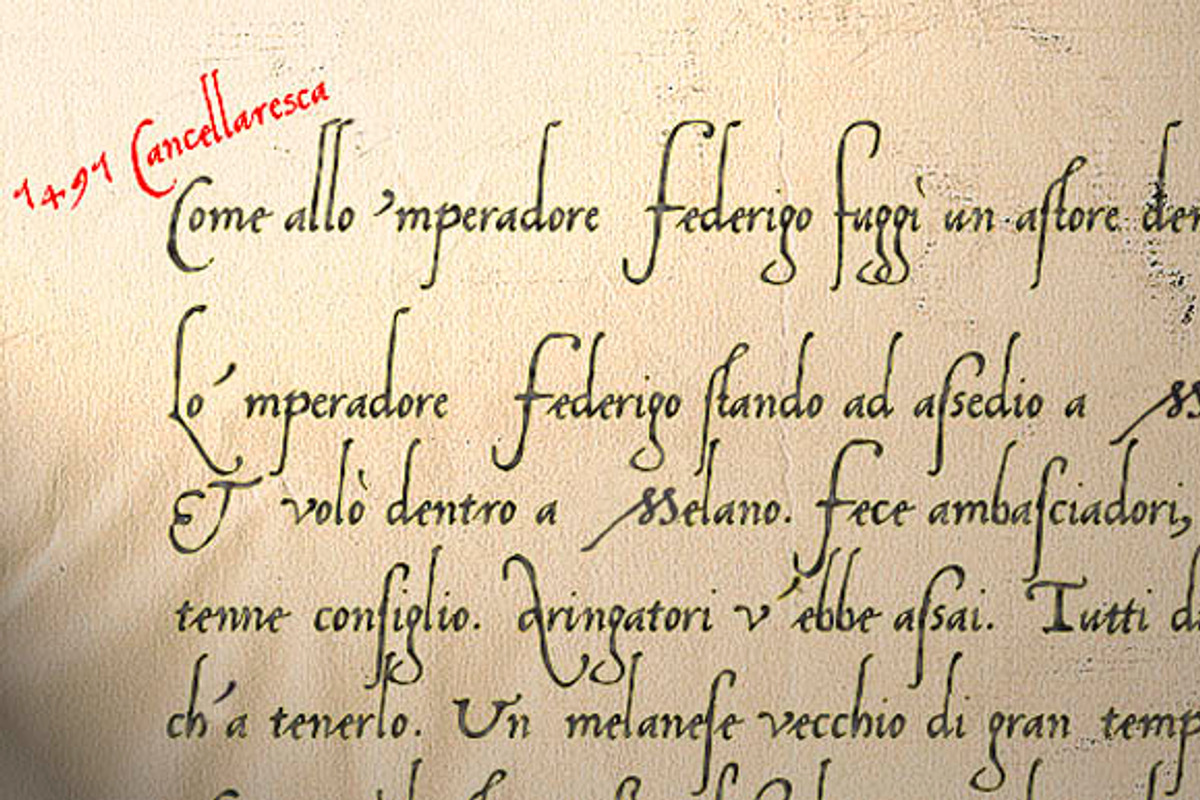 1491 Cancellaresca
Come allo 'mperadore Federigo fuggì un aſtore den
Lo' mperadore Federigo ſtando ad aſſedio a M
ET volò dentro a Melano. Fece ambaſciadori,
tenne conſiglio. Aringatori v'ebbe aſſai. Tutti d
ch'a tenerlo. Un melaneſe vecchio di gran temp